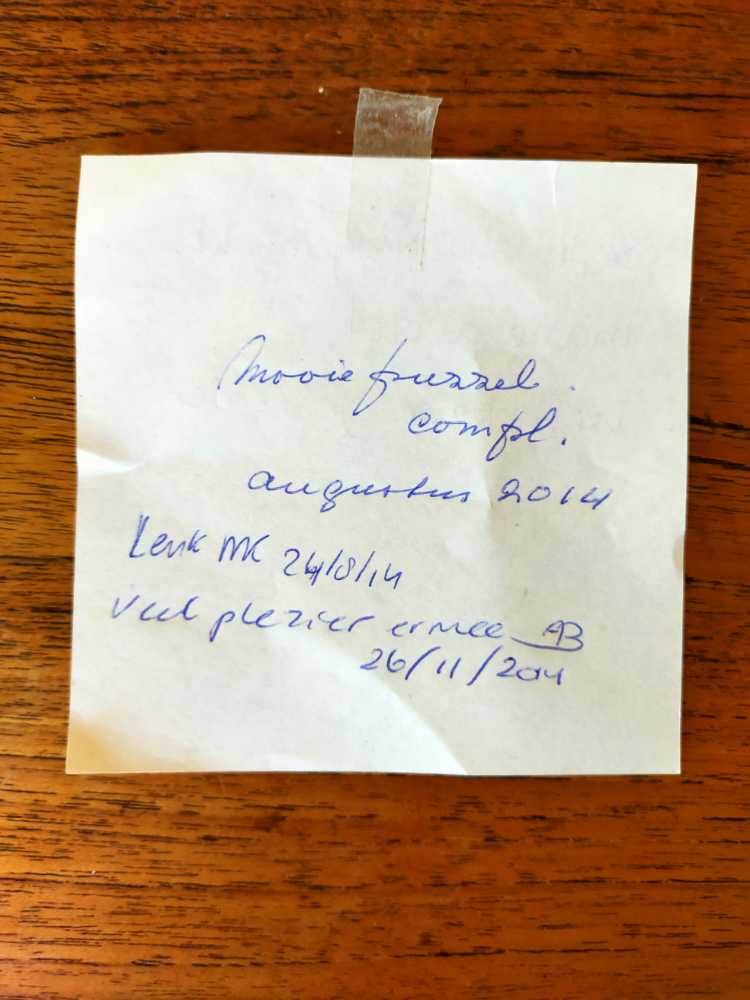 Mooie puzzel.
compl.
augustus 2014
Leuk MK 24/8/14
Veel plezier ermee AB
26/11/2014